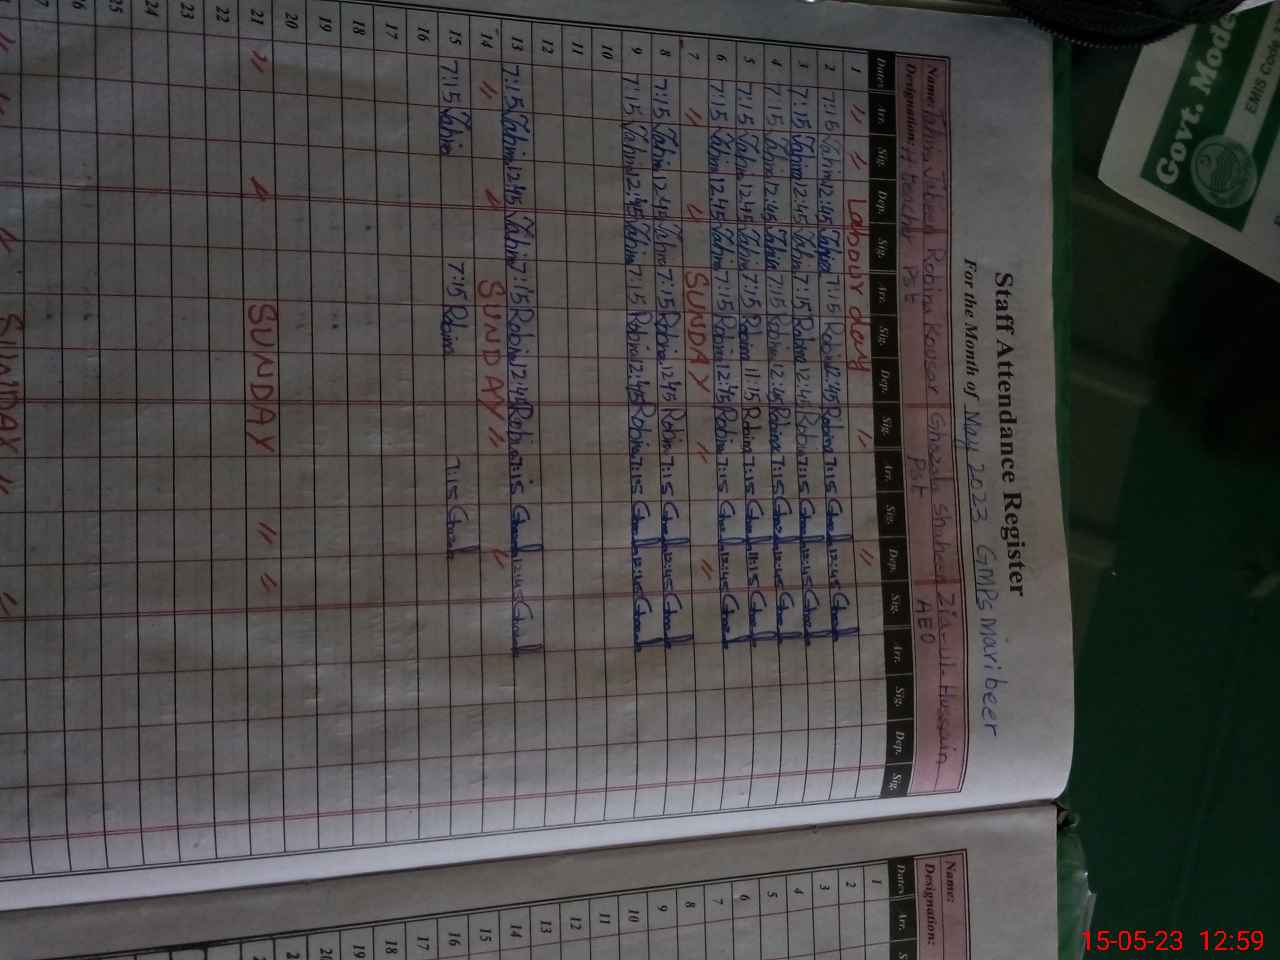 Staff Attendance Register
For the Month of May 2023 GMPS Maribeer
Name: Tahira Jabeen Robina Kousar Ghazala Shaheen Zia-ul-Hussain
Designation: H teacher PST PST AEO
Dates Arr. Sig. Dep. Sig. Arr. Sig. Dep. Sig. Arr. Sig. Dep. Sig. Arr. Sig. Dep. Sig.
1 " " Labour day " "
2 7:15 Tahira 12:45 Tahira 7:15 Robina 12:45 Robina 7:15 Ghazal 12:45 Ghazal
3 7:15 Tahira 12:45 Tahira 7:15 Robina 12:45 Robina 7:15 Ghazal 12:45 Ghazal
4 7:15 Tahira 12:45 Tahira 7:15 Robina 12:45 Robina 7:15 Ghazal 12:45 Ghazal
5 7:15 Tahira 12:45 Tahira 7:15 Robina 11:15 Robina 7:15 Ghazal 11:15 Ghazal
6 7:15 Tahira 12:45 Tahira 7:15 Robina 12:45 Robina 7:15 Ghazal 12:45 Ghazal
7 " " SUNDAY " "
8 7:15 Tahira 12:45 Tahira 7:15 Robina 12:45 Robina 7:15 Ghazal 12:45 Ghazal
9 7:15 Tahira 12:45 Tahira 7:15 Robina 12:45 Robina 7:15 Ghazal 12:45 Ghazal
10
11
12
13 7:15 Tahira 12:45 Tahira 7:15 Robina 12:45 Robina 7:15 Ghazal 12:45 Ghazal
14 " " SUNDAY " "
15 7:15 Tahira 7:15 Robina 7:15 Ghazal
16
17
18
19
20
21 " " SUNDAY " "
22
23
24
25
26
27
" " " SUNDAY " "
Name:
Designation:
Dates Arr.
1
2
3
4
5
6
7
8
9
10
11
12
13
14
15
16
17
18
19
20
Govt. Mode
EMIS Code
15-05-23 12:59